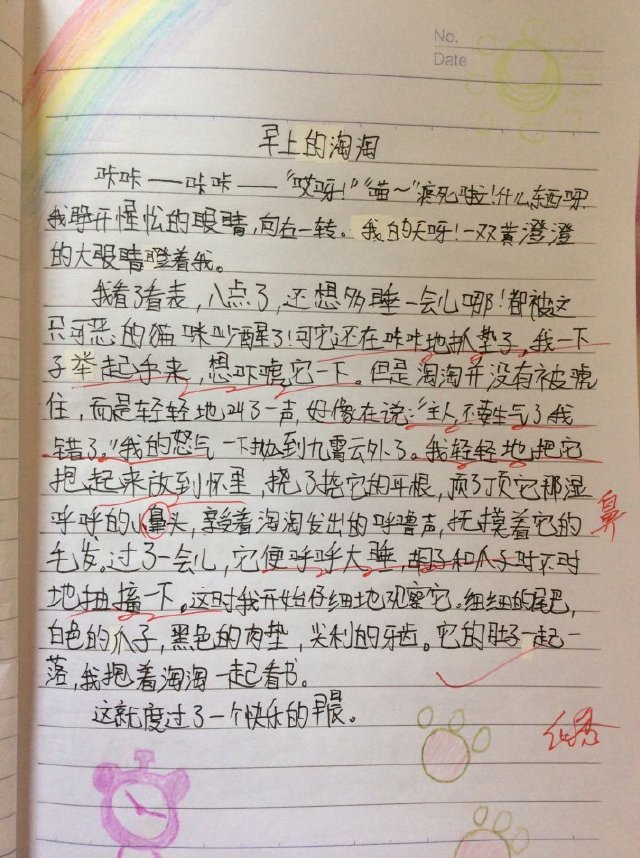 No.
Date
早上的淘淘
咔咔——咔咔——“哎呀!”“喵~”痰死啦!什么东西呀?
我睁开惺忪的眼睛,向右一转。我的天呀!一双黄澄澄
的大眼睛瞪着我。
我看了看表,八点了,还想多睡一会儿哪!都被这
只可恶的猫咪叫醒了!可它还在咔咔地抓垫子。我一下
子举起手来,想吓唬它一下。但是淘淘并没有被唬
住,而是轻轻地叫了一声,好像在说:“主人不要生气了我
错了。”我的怒气一下抛到九霄云外了。我轻轻地把它
抱起来放到怀里,挠了挠它的耳根,顶了顶它那湿
呼呼的小鼻头,享受着淘淘发出的呼噜声,抚摸着它的
毛发。过了一会儿,它便呼呼大睡,胡子和爪子时不时
地抽搐一下。这时我开始仔细地观察它。细细的尾巴,
白色的爪子,黑色的肉垫,尖利的牙齿。它的肚子一起一
落,我抱着淘淘一起看书。
这就度过了一个快乐的早晨。
鼻
优秀